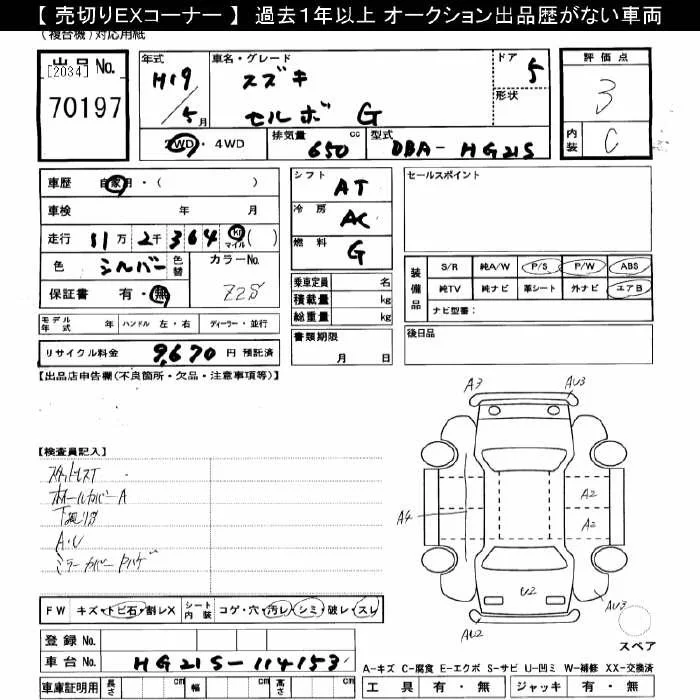 【 売切りEXコーナー 】 過去1年以上 オークション出品歴がない車両
(複合機)対応用紙
出品 No.
[2034]
70197
年式
H19/5月
車名・グレード
スズキ
セルボ G
ドア
5
形状
評価点
3
内装
C
2WD・4WD
排気量
650 cc
型式
DBA-HG21S
車歴 自家用・( )
車検 年 月
走行 11万 2千 364 km マイル ( )
色 シルバー 色替 カラーNo.
Z2S
保証書 有・無
モデル年式 年 ハンドル 左・右 ディーラー・並行
リサイクル料金 9,670 円 預託済
シフト
AT
冷房
AC
燃料
G
乗車定員 名
積載量 kg
総重量 kg
書類期限
月 日
セールスポイント
装備品
S/R 純A/W P/S P/W ABS
純TV 純ナビ 革シート 外ナビ エアB
ナビ型番:
後日品
【出品店申告欄(不良箇所・欠品・注意事項等)】
【検査員記入】
ホイールカバーA
下廻りサ
A・U
ミラーカバー Pハゲ
A3
AU3
A4
A2
A2
U2
AU2
AU3
スペア
FW キズ・トビ石・割レX シート内装 コゲ・穴・汚レ・シミ・破レ・スレ
登録 No.
車台 No. HG21S-114153
車庫証明用 長さ cm 幅 cm 高さ cm
A-キズ C-腐食 E-エクボ S-サビ U-凹ミ W-補修 XX-交換済
工具 有・無 ジャッキ 有・無